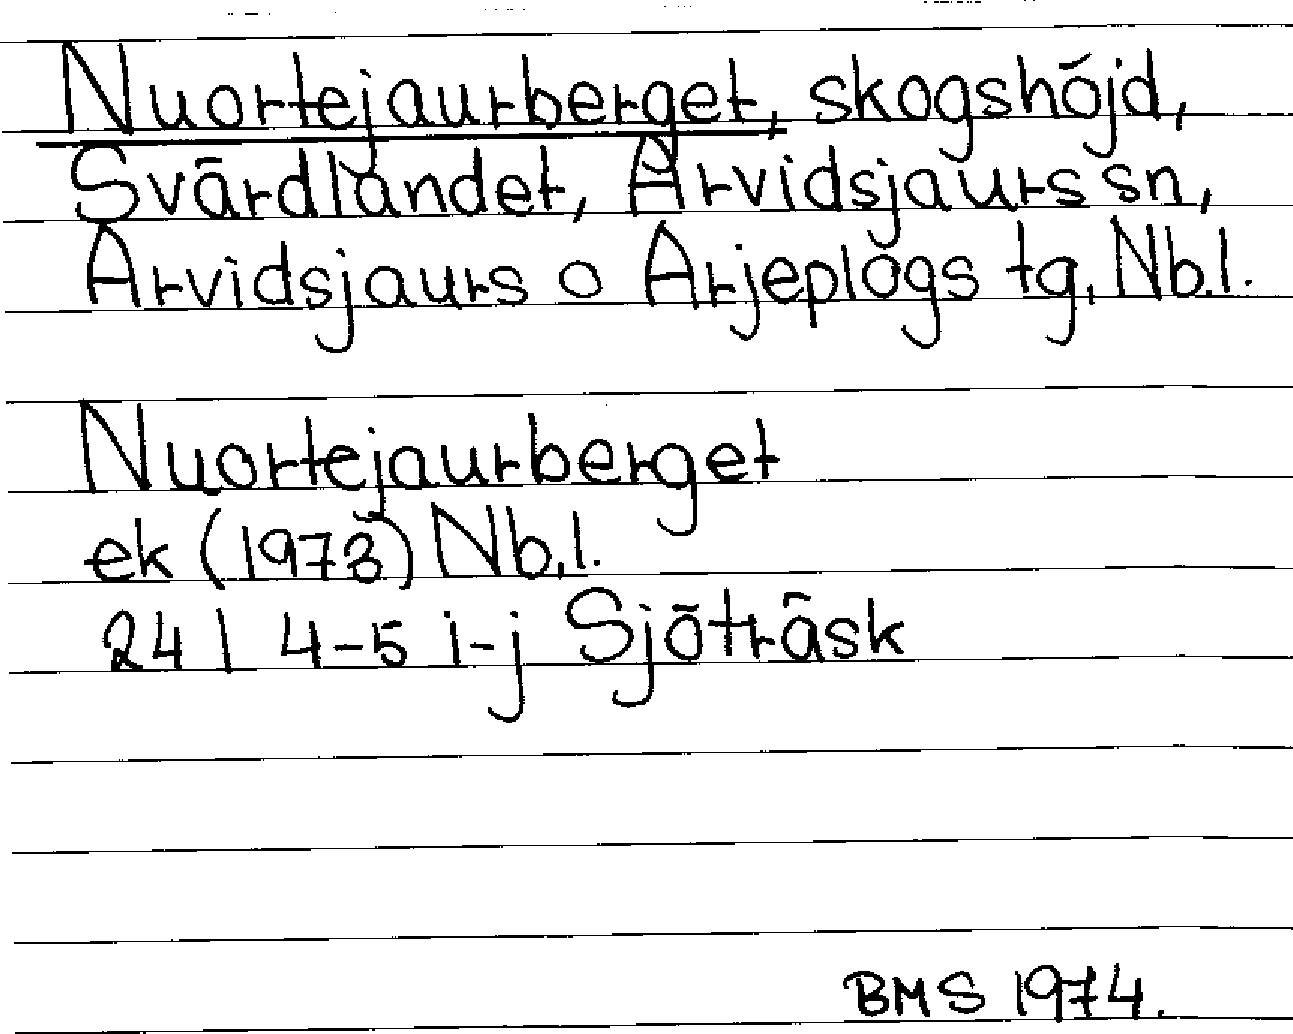 Nuortejaurberget, skogshöjd,
Svärdlandet, Arvidsjaurs sn,
Arvidsjaurs o Arjeplogs tg, Nb.l.
Nuortejaurberget
ek (1973) Nb.l.
24 I 4-5 i-j Sjöträsk
BMS 1974.